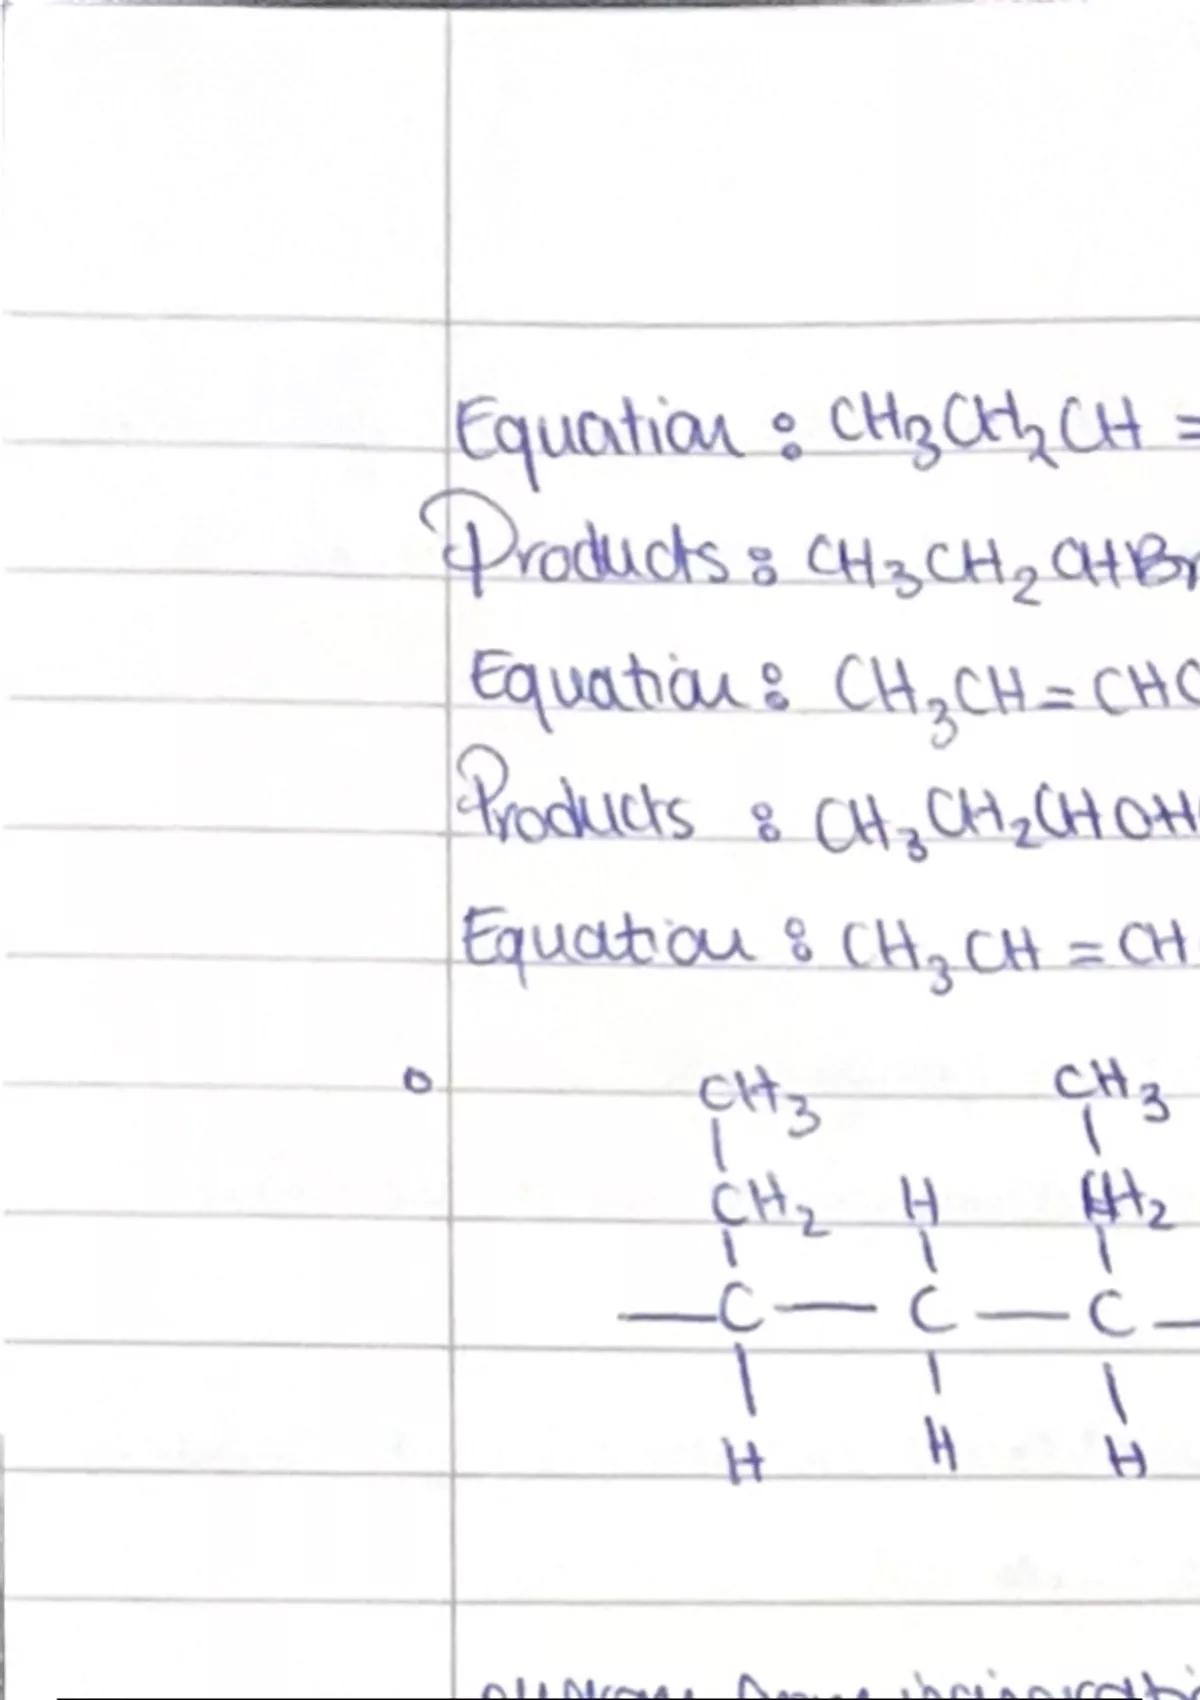 Equation : CH3CH2CH =
Products : CH3CH2CHBr
Equation : CH3CH = CHC
Products : CH3CH2CHOH
Equation : CH3CH = CH
CH3 CH3
| |
CH2 H CH2
| | |
— C — C — C —
| | |
H H H